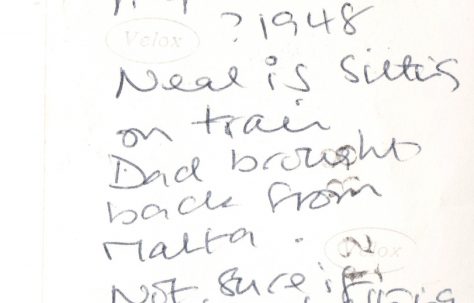 ? 1948
Velox
Neal is sitting
on train
Dad brought
back from
Malta.
Velox
Not sure if